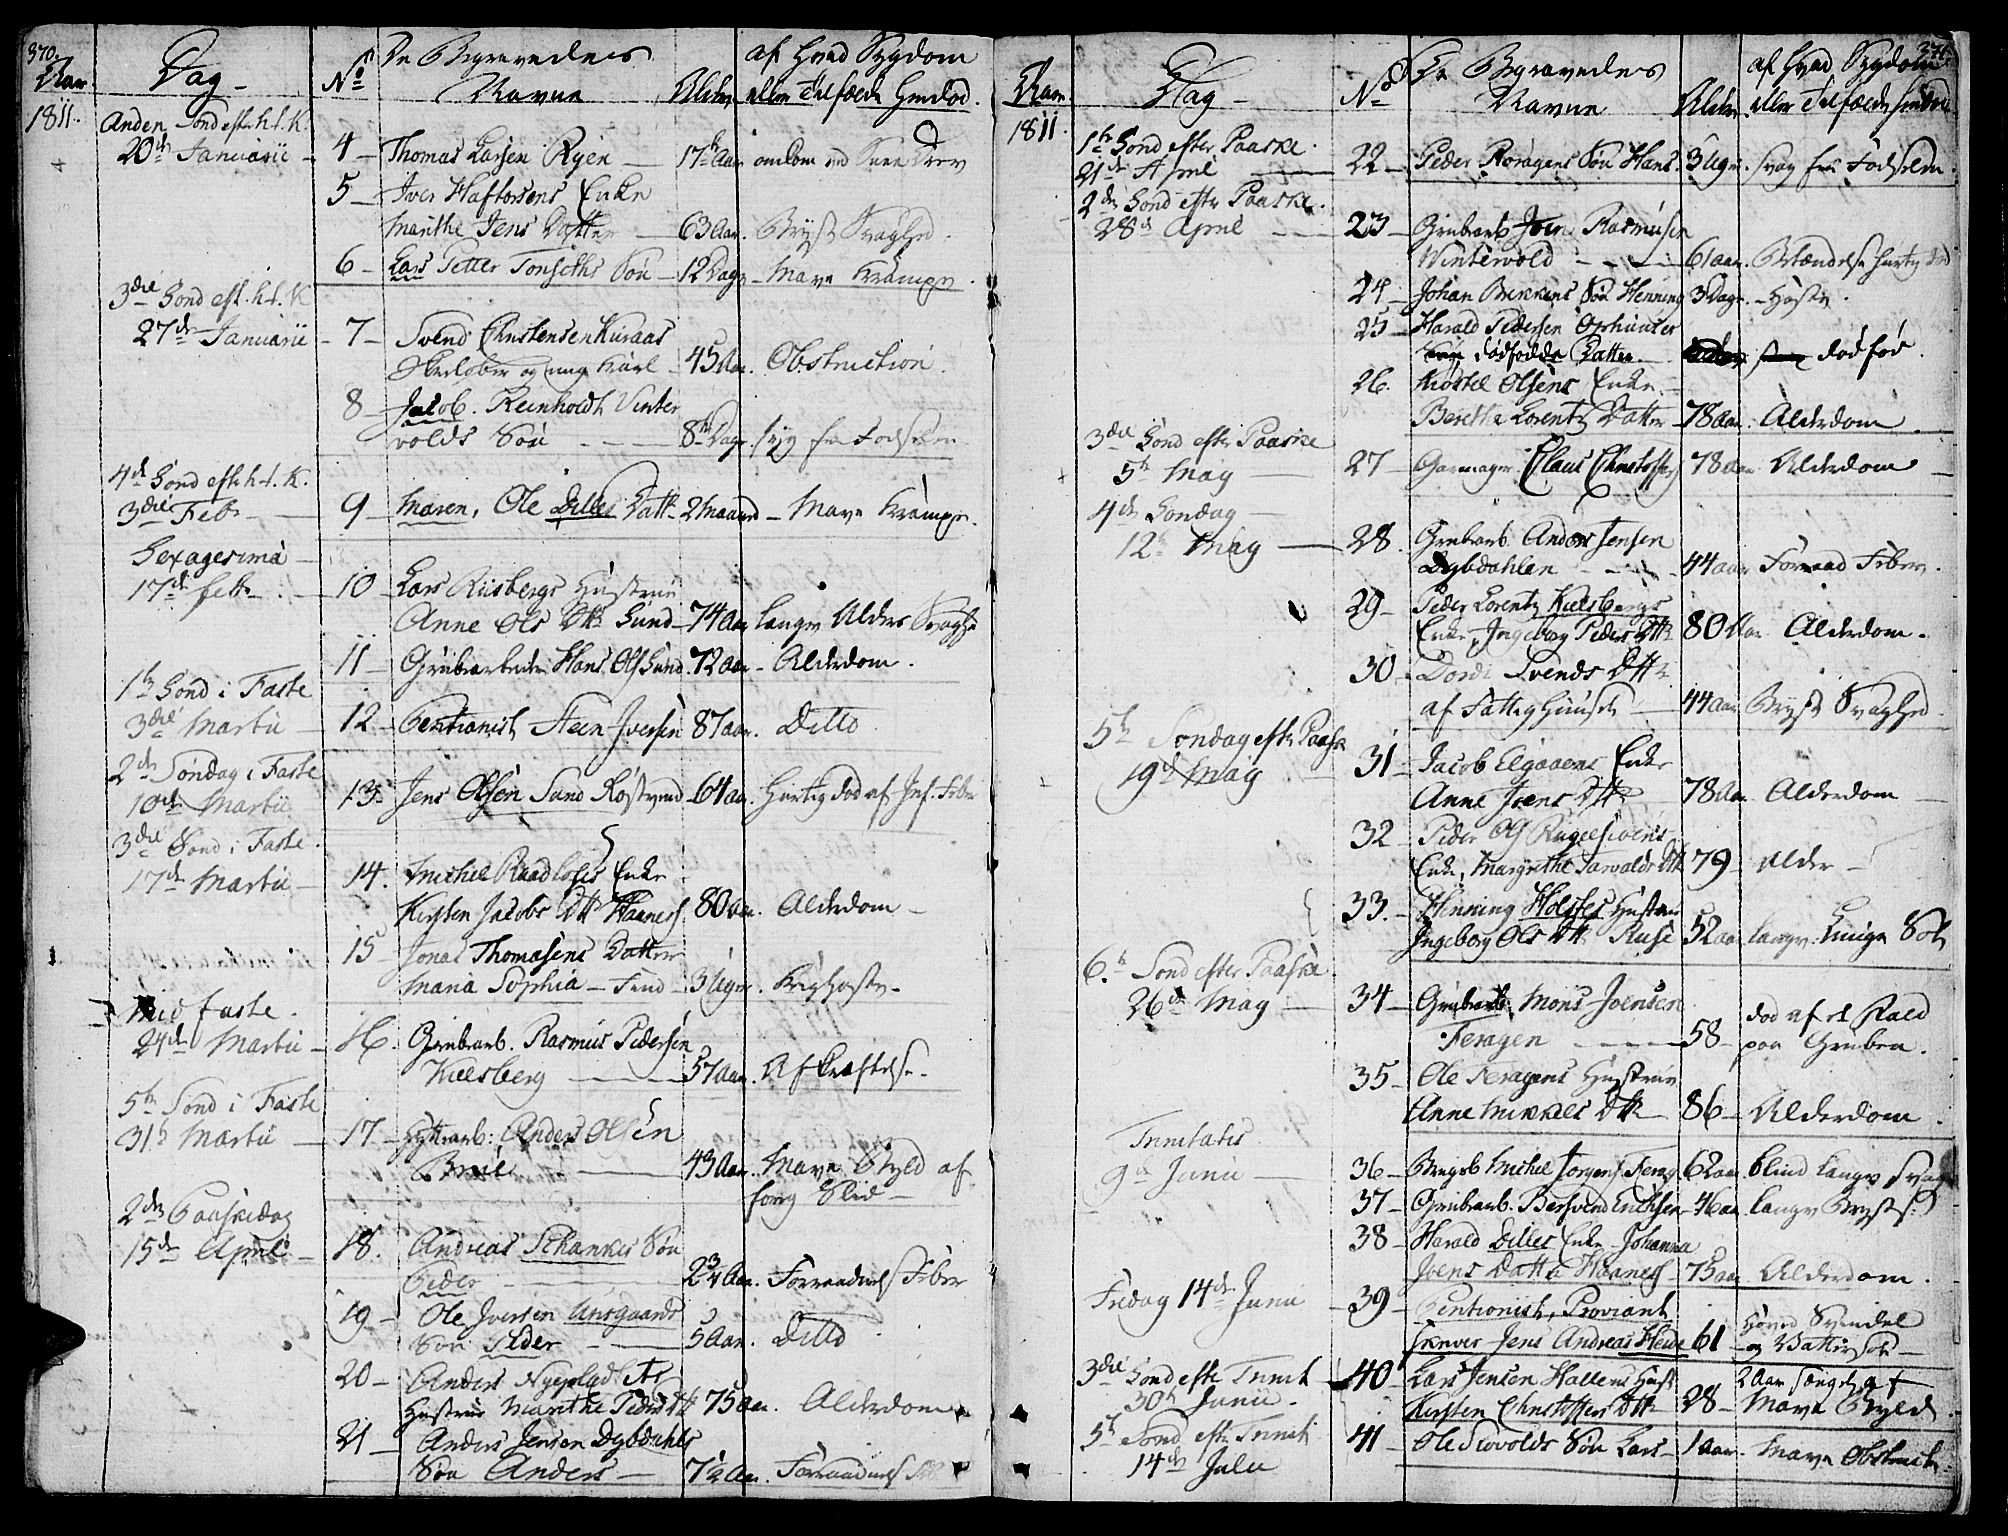 370.
Aar
Dag
No
De Begravedes
Navne
Alder
af Hvad Sygdom
eller Tilfælde hendød.
1811.
Anden Sond eft. h. 3. K.
20de Januarii
4 Thomas Larsen Ryen 17 Aar omkom ved Snee Drev
5 Iver Haftorsens Enke
Marithe Jens Datter 63 Aar. Bryst Svaghed.
6 Lars Petter Tonseths Søn 12 Dage Mave Krampe.
3die Sond eft. h. 3. K.
27de Januarii 7 Svend Christensen Kuraas
Skieløber og ung Karl 45 Aar. Obstruction.
8 Jacob Reinholdt Vinter
volds Søn 8 Dage. syg fra Fødselen
4de Sond eft. h. 3. K.
3die Febr 9 Maren, Ole Dilles Datt. 2 Maaned Mave Krampe.
Sexagesima
17de Febr. 10 Lars Riisbergs Hustrue
Anne Ols Dtt. Sund 74 Aar langv. Alders Svaghd
11 Grubearbeider Hans Ols Sund 72 Aar Alderdom.
1ste Sond i Faste
3die Martii 12 Pentionist Steen Iversen 87 aar. Ditto
2den Søndag i Faste
10de Martii 13 Jens Olsen Sund Røstvend 64 aar. Hurtig død af Inf. Feber
3die Sond i Faste.
17de Martii 14. Michel Raadloses Enke
Kirsten Jacobs Dtt. Haanes 80 Aar. Alderdom
15 Jonas Thomasens Datter
Maria Sophia 3 Uger. Kighoste
Mid faste.
24de Martii 16. Grubearb. Rasmus Pedersen
Kielsberg 57 Aar. Afkræftelse.
5te Sond i Faste
31te Martii 17 Hyttearb: Anders Olsen
43 Aar. Mave Byld af
forig Slid
2den Paaskedag
15de April 18. Andreas Schankes Søn
Peder 2 3/4 Aar. Forraadnels Feber
19 Ole Iversen Aasgaards
Søn Peder 5 Aar. Ditto
20 Anders Nyeplads
Hustrue Marithe Peders Dtt 75 Aar. Alderdom
21 Anders Jensen Dybdahls
Søn Anders 7 1/2 Aar. Forraadnels
371.
Aar
Dag
No
De Begravedes
Navne
Alder.
af Hvad Sygdom
eller Tilfælde hendød
1811.
1ste Sond efter Paaske.
21de April 22 Peder Roragens Søn Hans. 3 Uger. svag fra Fødselen.
2den Sond efter Paaske.
28de April 23 Grubearb. Joen Rasmusen
Wintervold 61 aar. Betændelse hurtig død
24 Johan Bekkens Søn Henning 3 Dage. Hoste.
25 Harald Pedersen Ophuuses
dødfødde Datter. dødfød.
26. Kiøstel Olsens Enke
Berethe Lorentz Datter 78 aar. Alderdom.
3die Sond efter Paaske
5te May 27 Garmager Claus Christoffers 78 aar Alderdom
4de Søndag
12te May 28. Grubearb. Anders Jensen
Dybdahlen 44 aar Forraad Feber.
29 Peder Lorentz Kielsbergs
Enke, Ingeborg Peders Dtt. 80 Aar. Alderdom.
30 Dordi Svends Dtt.
af Fattighuuset 44 Aar. Bryst Svaghed.
5te Søndag efter Paaske
19de May 31 Jacob Elgaaens Enke
Anne Joens Dtt. 78 Aar Alderdom
32 Peder Ols Rugelsioens
Enke, Margrethe Tarvalds Dtt 79 Alder
33. Henning Holsses Hustrue
Ingeborg Ols Dtt. Ruse 52 aar langv. Lunge Sot
6te Sond efter Paaske.
26de May 34 Grubearb. Mons Joensen
Feragen 58 død af et Fald
paa Gruben.
35 Ole Feragens Hustrue
Anne Mikkels Dtt. 86 Alderdom.
Trinitatis
9de Junii 36 Bergsb. Michel Jorgens. Ferag. 62 aar. blind langv. Svagh
37 Grubearb. Bersvend Erichsen 46 aar. langv. Brysts.
38 Harald Dilles Enke Johanna
Joens Datter Haanes 75 aar. Alderdom.
Fredag 14de Junii 39 Pentionist, Proviant
skriver Jens Andreas Heide 61 Hoved Svindel
og Vattersot
3die Sond efter Trinit
30te Junii. 40 Lars Jensen Hallens Hust.
Kirsten Christoffers Dtt. 28 2 Aar sengel. af
Mave Byld
5te Sond efter Trinit
14de Julii 41 Ole Siovolds Søn Lars 1 aar. Mave Obstruct.